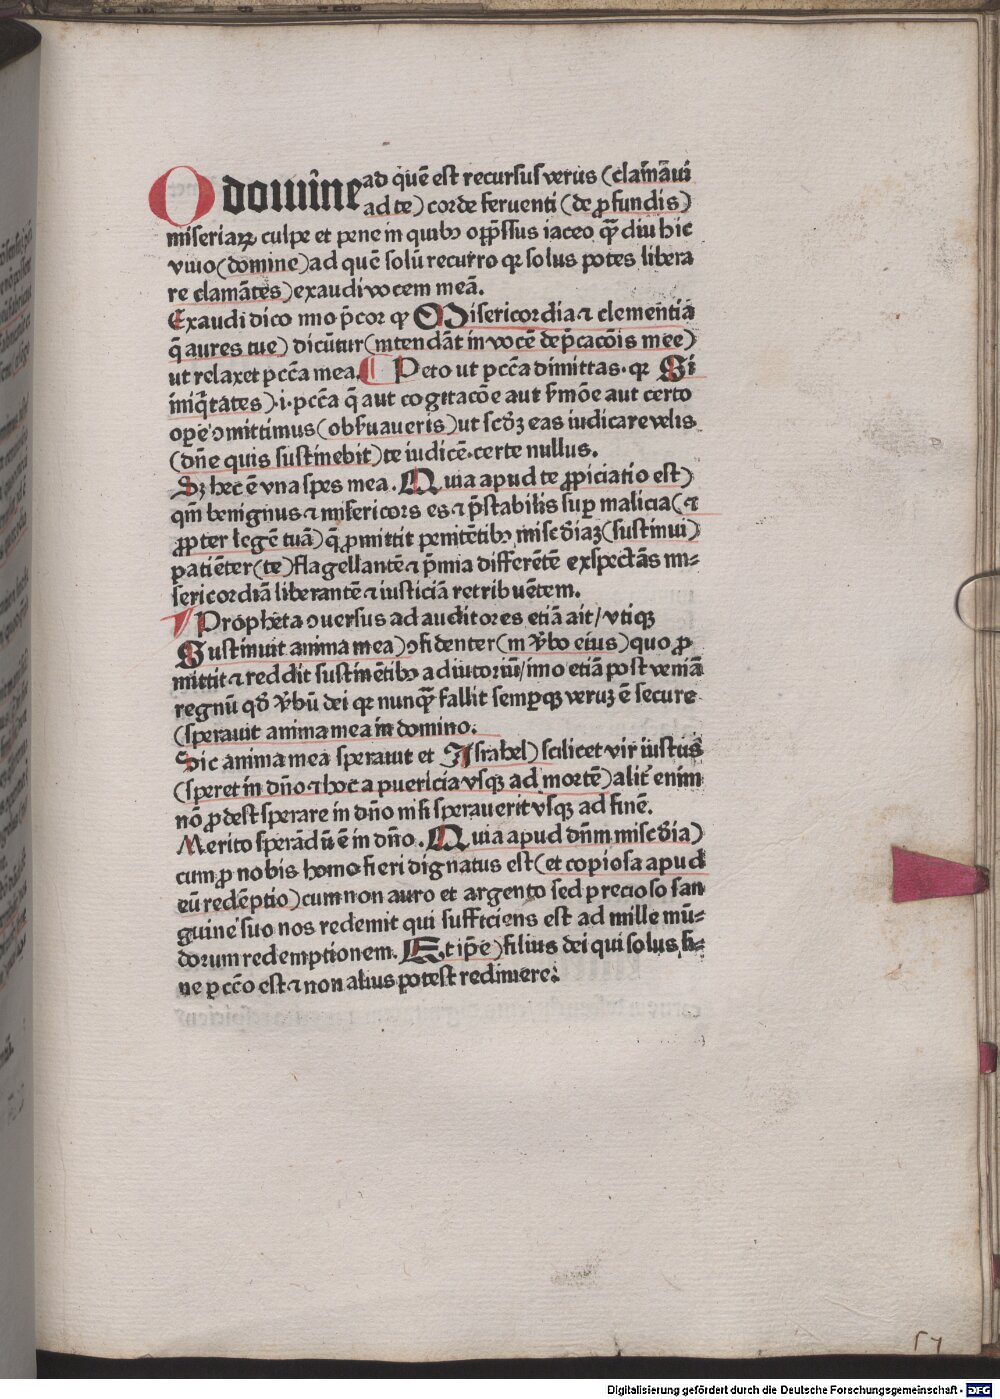 O domine ad quē est recursus verus (clamāui
ad te) corde feruenti (de ꝓfundis)
miseriaꝝ culpe et pene in quibꝰ opp̄ssus iaceo qꝫ diu hic
viuo (domine) ad quē solū recurro qꝛ solus potes libera
re clamātes) exaudi vocem meā.
Exaudi dico īmo p̄cor qꝛ Misericordia ⁊ clementia
q̄ aures tue) dicūtur (intendāt in vocē dep̄cacōis mee)
ut relaxet pccā mea. ¶ Peto ut pccā dimittas. qꝛ Si
iniq̄tates) .i. pccā q̄ aut cogitacōe aut s̄mōe aut certo
ope ꝯmittimus (obseruaueris) ut scd̄ꝫ eas iudicare velis
(dn̄e quis sustinebit) te iudicē. certe nullus.
Sꝫ hec ē vna spes mea. Quia apud te ꝓpiciatio est)
qm̄ benignus ⁊ misericors es ⁊ p̄stabilis suꝑ malicia (⁊
ꝓpter legē tuā) q̄ ꝓmittit penitētibꝰ misc̄diaꝫ (sustinui)
patiēter (te) flagellantē ⁊ p̄mia differētē exspectās mi⸗
sericordiā liberantē ⁊ iusticiā retribuētem.
¶ Propheta ꝯuersus ad auditores etiā ait / vtiqꝫ
Sustinuit anima mea) ꝯfidenter (in v̄bo eius) quo ꝓ
mittit ⁊ reddit sustinētibꝰ adiutoriū / īmo etiā post veniā
regnū qd̄ v̄bū dei qꝛ nunqꝫ fallit sempqꝫ veruꝫ ē secure
(sperauit anima mea in domino.
Sic anima mea sperauit et Israhel) scilicet vir iustus
(speret in dn̄o ⁊ hoc a puericia vsqꝫ ad mortē) alit̄ enim
nō ꝓdest sperare in dn̄o nisi sperauerit vsqꝫ ad finē.
Merito sperādū ē in dn̄o. Quia apud dn̄m misc̄dia)
cum ꝓ nobis homo fieri dignatus est (et copiosa apud
eū redēptio) cum non auro et argento sed precioso san
guine suo nos redemit qui sufficiens est ad mille mū⸗
dorum redemptionem. Et ip̄e) filius dei qui solus si⸗
ne pccō est ⁊ non alius potest redimere:
57
Digitalisierung gefördert durch die Deutsche Forschungsgemeinschaft - DFG